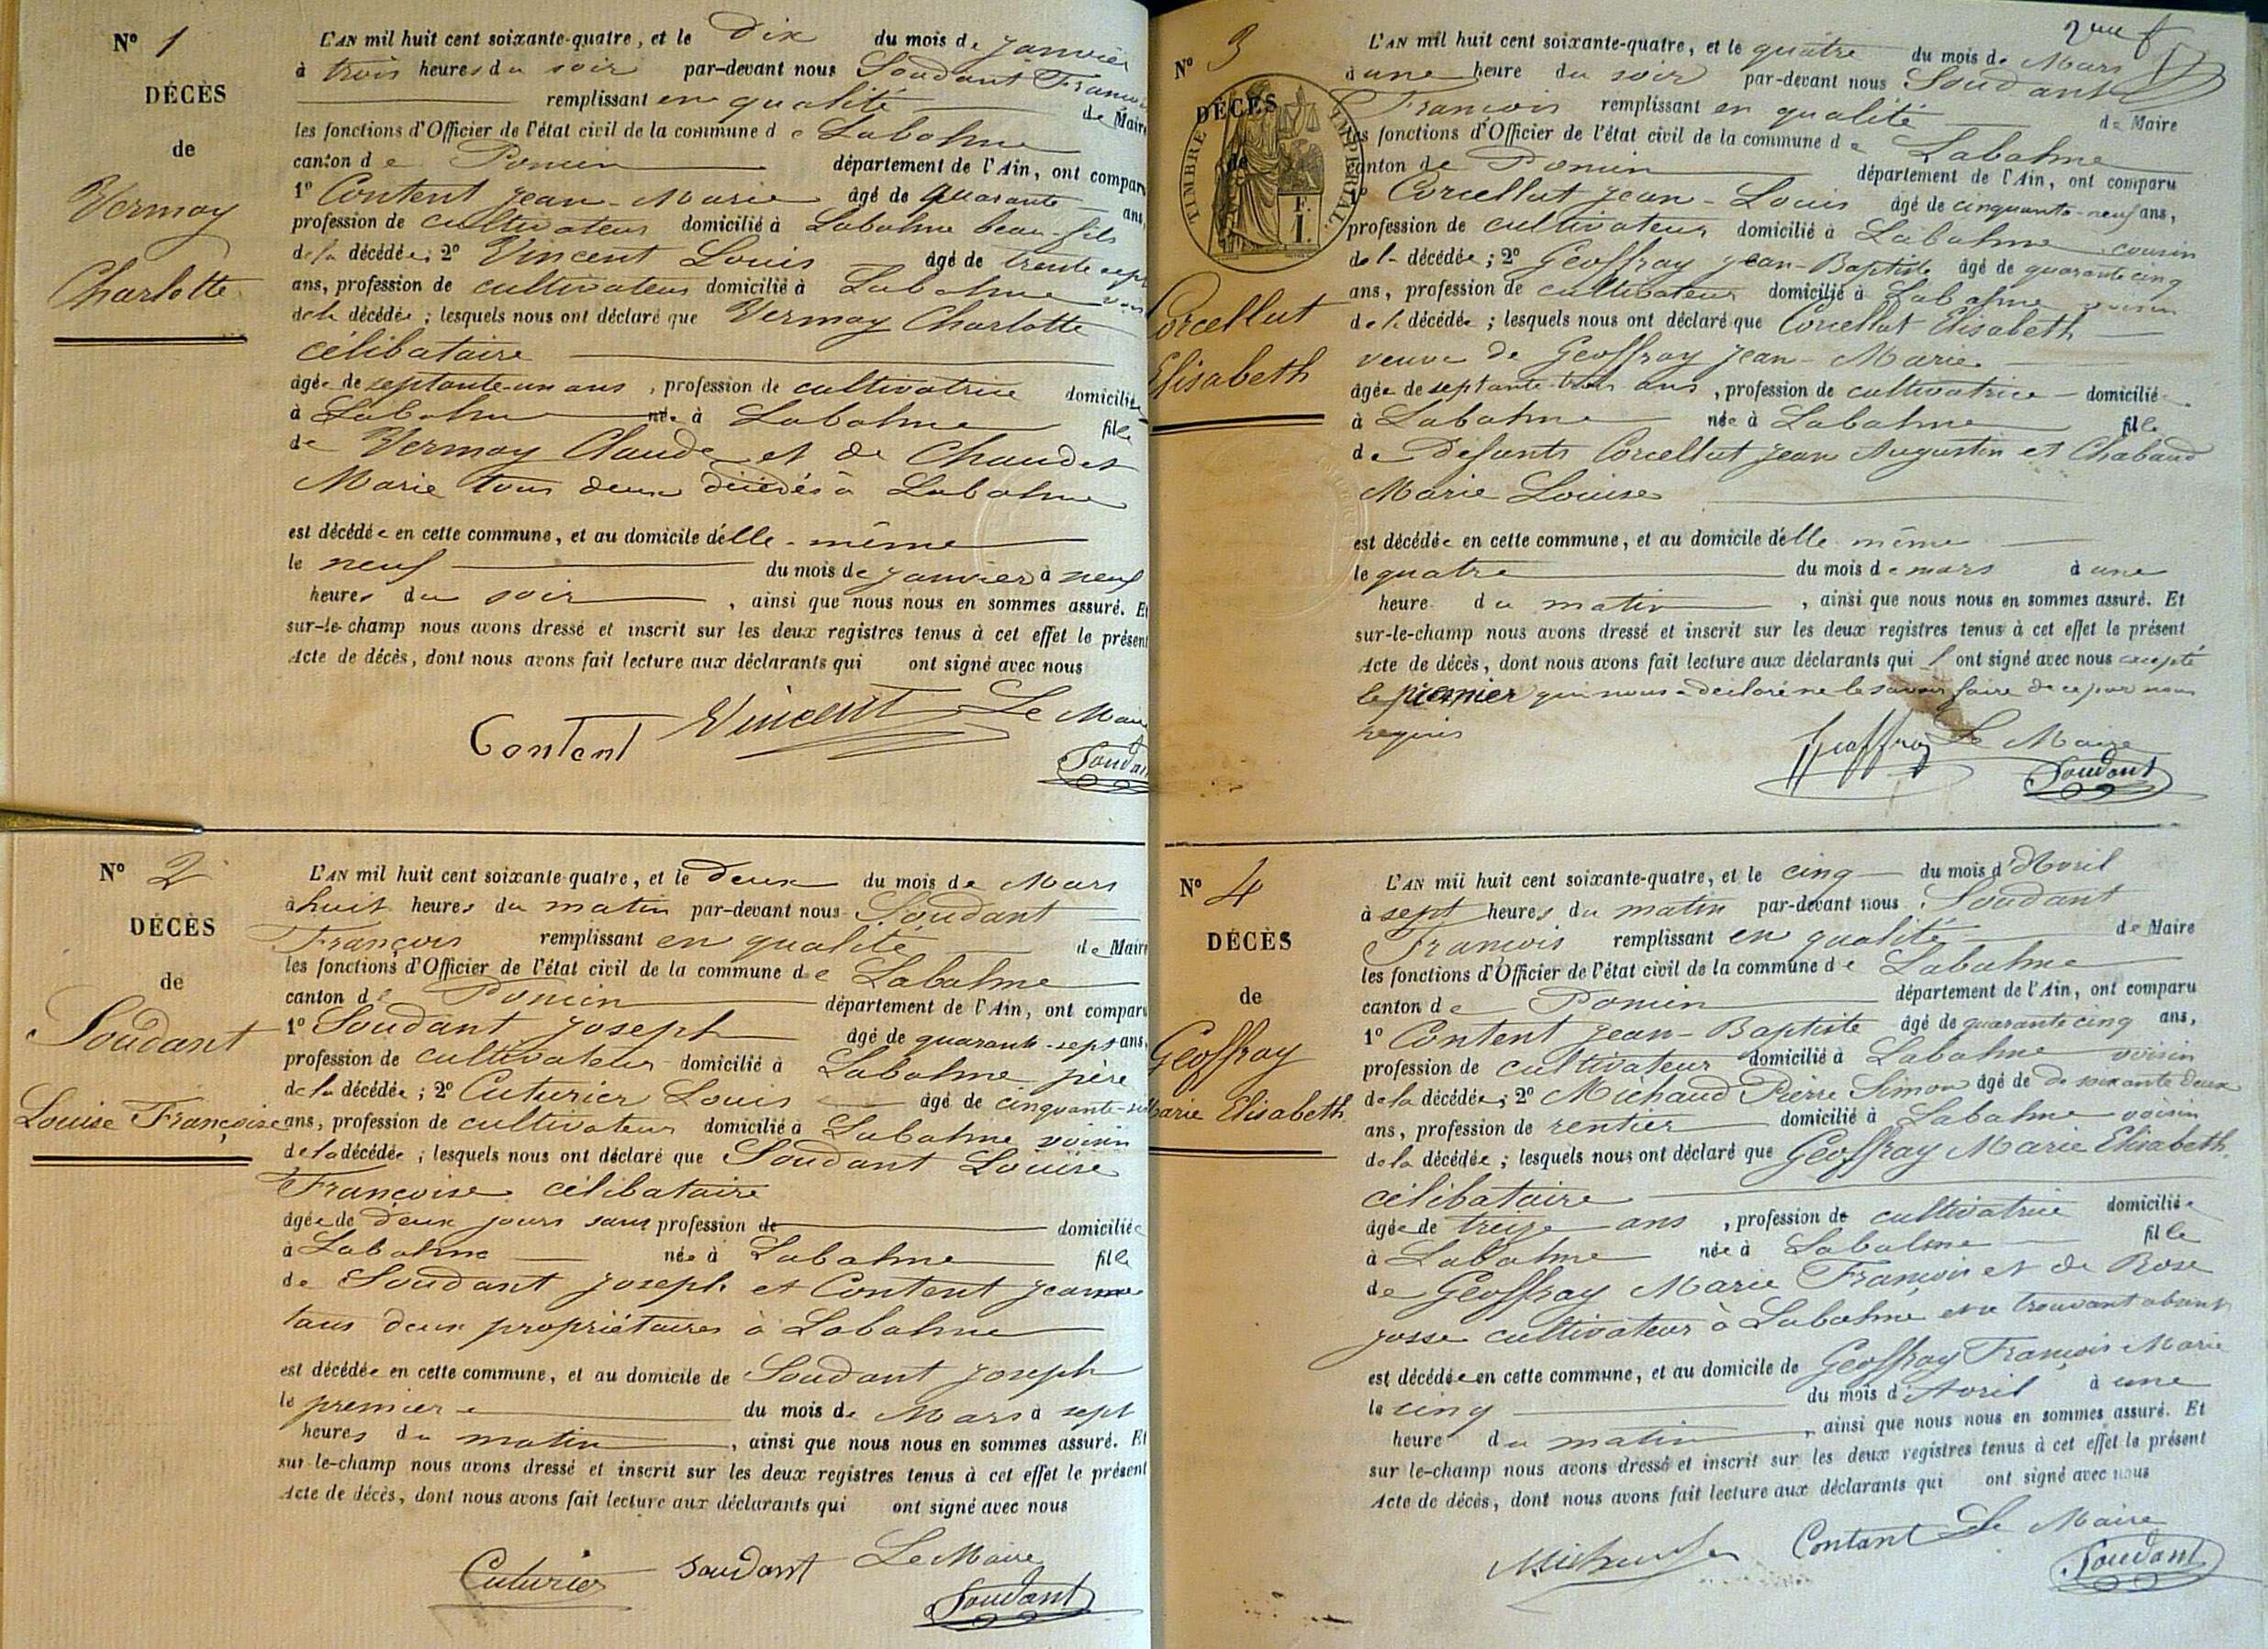 N° 1
DÉCÈS
de
Vermay
Charlotte
L'AN mil huit cent soixante-quatre, et le dix du mois de janvier
à trois heures du soir par-devant nous Soudant François
remplissant en qualité de Maire
les fonctions d'Officier de l'état civil de la commune de Labalme
canton de Poncin département de l'Ain, ont comparu
1° Content Jean-Marie âgé de quarante ans,
profession de cultivateur domicilié à Labalme beau-fils
de la décédée; 2° Vincent Louis âgé de trente sept
ans, profession de cultivateur domicilié à Labalme
de la décédée; lesquels nous ont déclaré que Vermay Charlotte
célibataire
âgée de septante-un ans, profession de cultivatrice domiciliée
à Labalme née à Labalme fille
de Vermay Claude et de Chaudet
Marie tous deux décédés à Labalme
est décédée en cette commune, et au domicile d'elle-même
le neuf du mois de janvier à neuf
heures du soir, ainsi que nous nous en sommes assuré. Et
sur-le-champ nous avons dressé et inscrit sur les deux registres tenus à cet effet le présent
Acte de décès, dont nous avons fait lecture aux déclarants qui ont signé avec nous
Content Vincent Le Maire
Soudant
N° 2
DÉCÈS
de
Soudant
Louise Françoise
L'AN mil huit cent soixante-quatre, et le deux du mois de Mars
à huit heures du matin par-devant nous Soudant
François remplissant en qualité de Maire
les fonctions d'Officier de l'état civil de la commune de Labalme
canton de Poncin département de l'Ain, ont comparu
1° Soudant Joseph âgé de quarante-sept ans,
profession de cultivateur domicilié à Labalme père
de la décédée; 2° Cuturier Louis âgé de cinquante-six
ans, profession de cultivateur domicilié à Labalme voisin
de la décédée; lesquels nous ont déclaré que Soudant Louise
Françoise célibataire
âgée de deux jours sans profession de domiciliée
à Labalme née à Labalme fille
de Soudant Joseph et Content Jeanne
tous deux propriétaires à Labalme
est décédée en cette commune, et au domicile de Soudant Joseph
le premier du mois de Mars à sept
heures du matin, ainsi que nous nous en sommes assuré. Et
sur-le-champ nous avons dressé et inscrit sur les deux registres tenus à cet effet le présent
Acte de décès, dont nous avons fait lecture aux déclarants qui ont signé avec nous
Cuturier Soudant Le Maire
Soudant
N° 3
DÉCÈS
de
TIMBRE IMPÉRIAL
Corcellut
Elisabeth
L'AN mil huit cent soixante-quatre, et le quatre du mois de Mars
à une heure du soir par-devant nous Soudant
François remplissant en qualité de Maire
les fonctions d'Officier de l'état civil de la commune de Labalme
canton de Poncin département de l'Ain, ont comparu
1° Corcellut Jean-Louis âgé de cinquante-neuf ans,
profession de cultivateur domicilié à Labalme cousin
de la décédée; 2° Geoffray Jean-Baptiste âgé de quarante cinq
ans, profession de cultivateur domicilié à Labalme voisin
de la décédée; lesquels nous ont déclaré que Corcellut Elisabeth
veuve de Geoffray Jean-Marie
âgée de septante-trois ans, profession de cultivatrice domiciliée
à Labalme née à Labalme fille
de Defunts Corcellut Jean Augustin et Chabaud
Marie Louise
est décédée en cette commune, et au domicile d'elle même
le quatre du mois de mars à une
heure du matin, ainsi que nous nous en sommes assuré. Et
sur-le-champ nous avons dressé et inscrit sur les deux registres tenus à cet effet le présent
Acte de décès, dont nous avons fait lecture aux déclarants qui l'ont signé avec nous excepté
le premier qui nous a déclaré ne le savoir faire de ce par nous
requis
Geoffray Le Maire
Soudant
N° 4
DÉCÈS
de
Geoffray
Marie Elisabeth
L'AN mil huit cent soixante-quatre, et le cinq du mois d'Avril
à sept heures du matin par-devant nous Soudant
François remplissant en qualité de Maire
les fonctions d'Officier de l'état civil de la commune de Labalme
canton de Poncin département de l'Ain, ont comparu
1° Content Jean-Baptiste âgé de quarante cinq ans,
profession de cultivateur domicilié à Labalme voisin
de la décédée; 2° Michaud Pierre Simon âgé de de soixante deux
ans, profession de rentier domicilié à Labalme voisin
de la décédée; lesquels nous ont déclaré que Geoffray Marie Elisabeth
célibataire
âgée de treize ans, profession de cultivatrice domiciliée
à Labalme née à Labalme fille
de Geoffray Marie François et de Rose
Josse cultivateur à Labalme se trouvant absent
est décédée en cette commune, et au domicile de Geoffray François Marie
le cinq du mois d'Avril à une
heure du matin, ainsi que nous nous en sommes assuré. Et
sur le-champ nous avons dressé et inscrit sur les deux registres tenus à cet effet le présent
Acte de décès, dont nous avons fait lecture aux déclarants qui ont signé avec nous
Michaud Contant Le Maire
Soudant